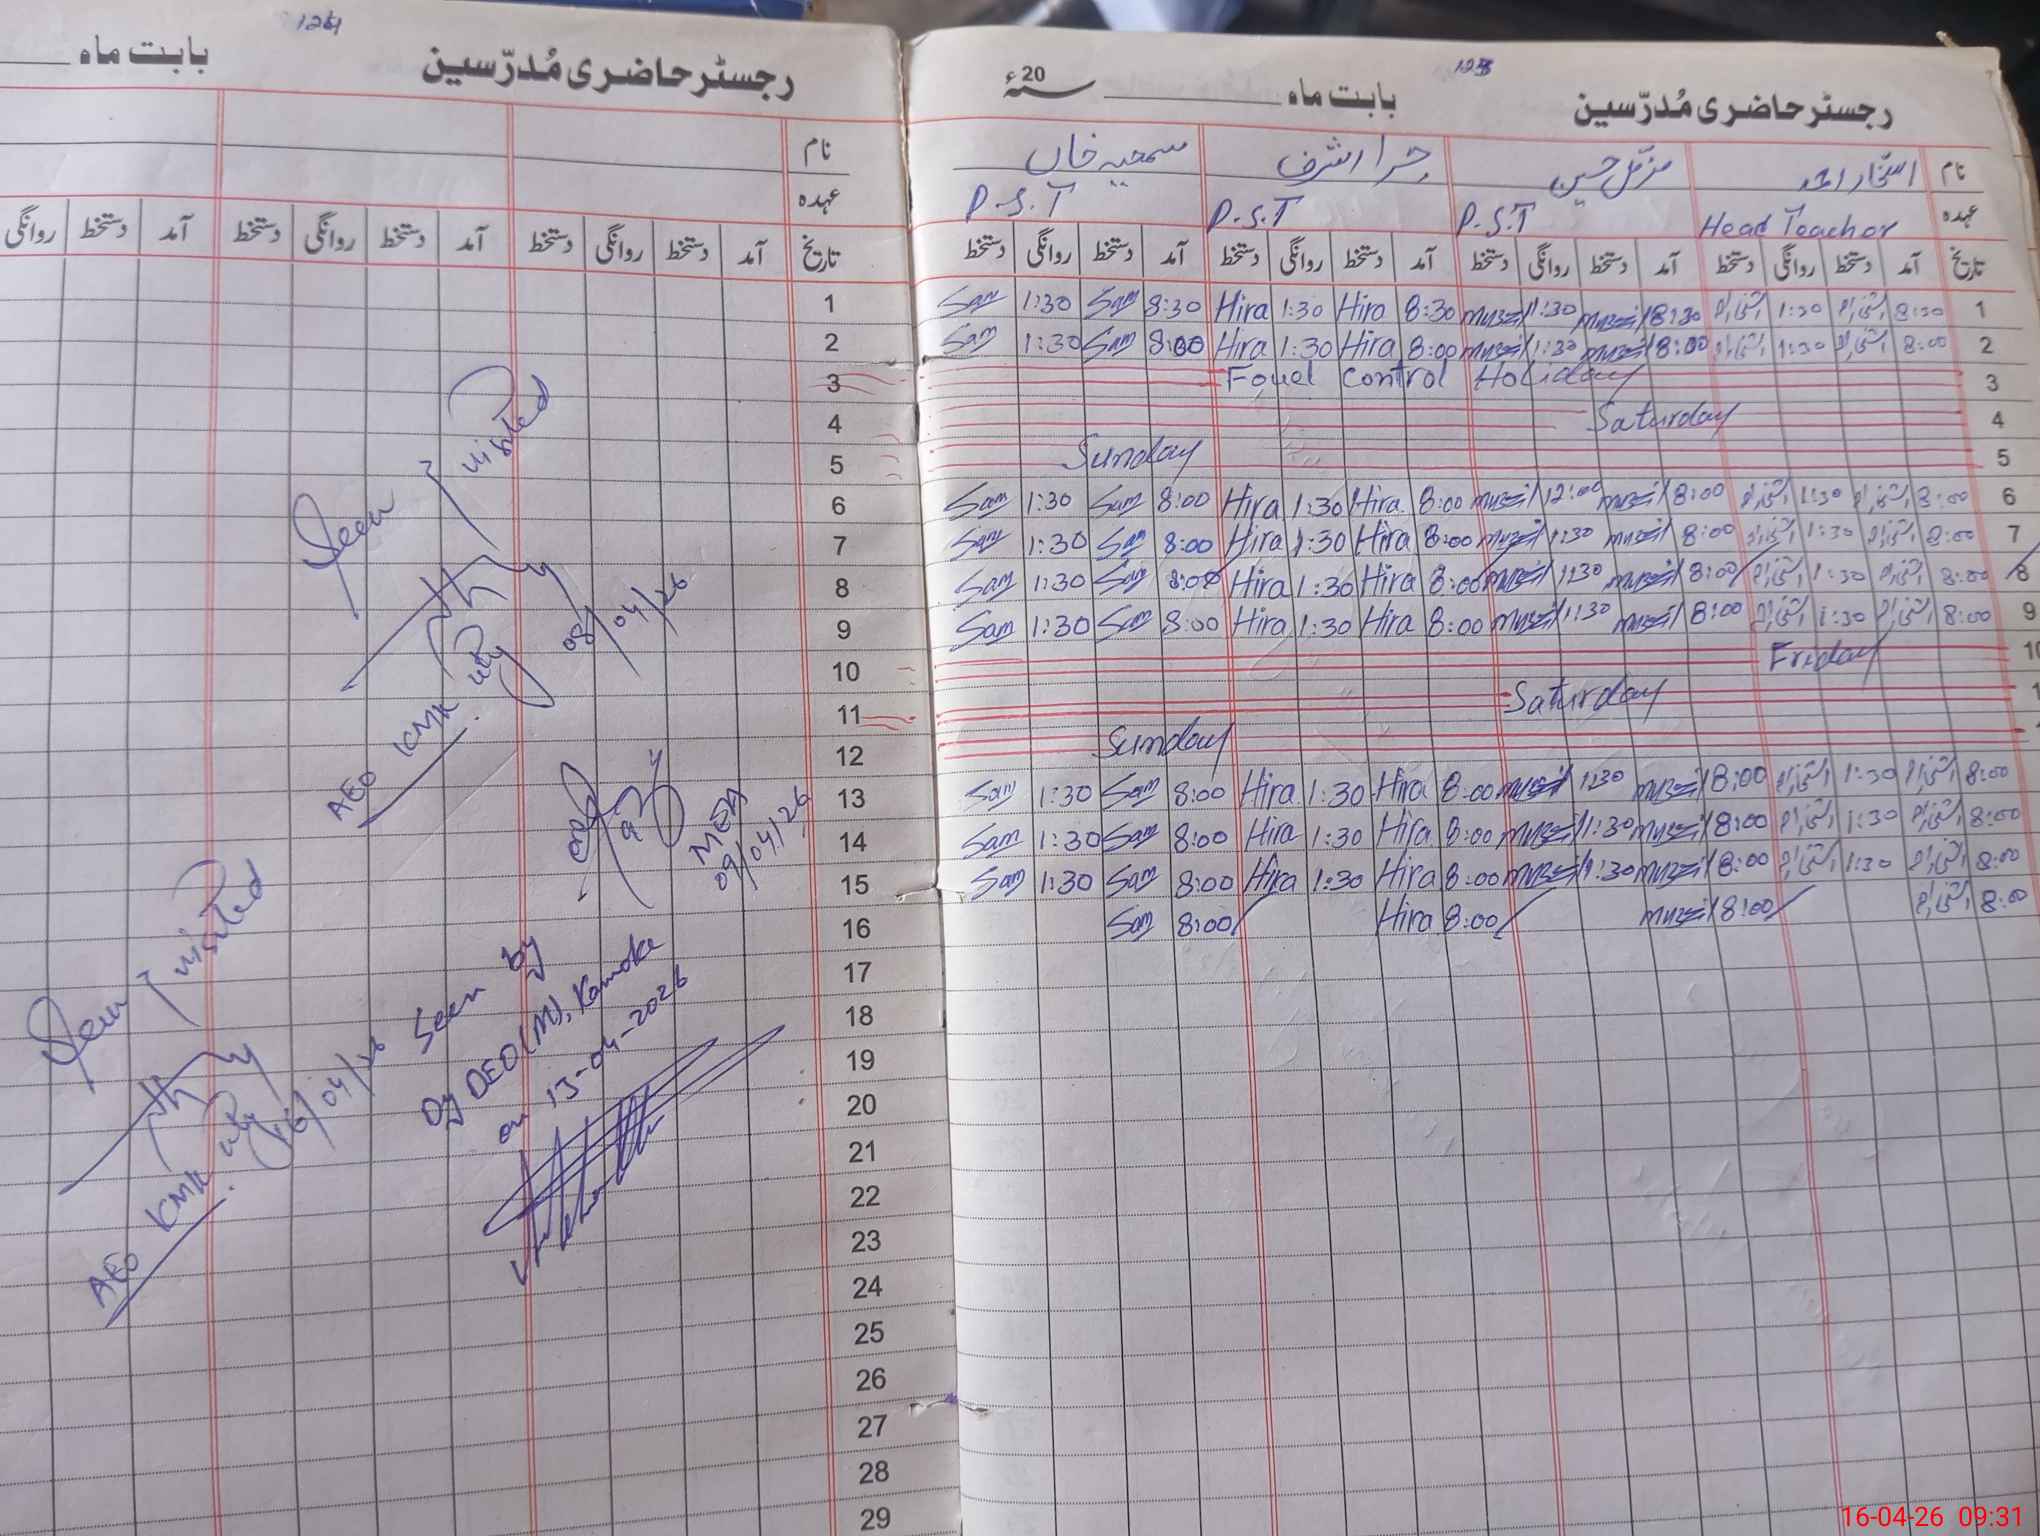 124
رجسٹر حاضری مُدرّسین بابت ماہ
نام
عہدہ
تاریخ آمد دستخط روانگی دستخط آمد دستخط روانگی دستخط آمد دستخط روانگی
1
2
3
4
5
6
7
8
9
10
11
12
13
14
15
16
17
18
19
20
21
22
23
24
25
26
27
28
29
Seen visited
08/04/26
AEO KMK
MEA
09/04/26
Seen visited
16/04/26
AEO KMK
Seen by
Dy DEO (M), Kamoke
on 13-04-2026
رجسٹر حاضری مُدرّسین بابت ماہ سنہ 20ء
نام مزمل حسین حرا اشرف سمعیہ خان
عہدہ Head Teacher P.S.T P.S.T P.S.T
تاریخ آمد دستخط روانگی دستخط آمد دستخط روانگی دستخط آمد دستخط روانگی دستخط آمد دستخط روانگی دستخط
Sam 1:30 Sam 8:30 Hira 1:30 Hira 8:30 muzzil 1:30 muzzil 8:30 1:30 8:30 1
Sam 1:30 Sam 8:00 Hira 1:30 Hira 8:00 muzzil 1:30 muzzil 8:00 1:30 8:00 2
Fouel Control Holiday 3
Saturday 4
Sunday 5
Sam 1:30 Sam 8:00 Hira 1:30 Hira 8:00 muzzil 12:00 muzzil 8:00 1:30 8:00 6
Sam 1:30 Sam 8:00 Hira 1:30 Hira 8:00 muzzil 1:30 muzzil 8:00 1:30 8:00 7
Sam 1:30 Sam 8:00 Hira 1:30 Hira 8:00 muzzil 1:30 muzzil 8:00 1:30 8:00 8
Sam 1:30 Sam 8:00 Hira 1:30 Hira 8:00 muzzil 1:30 muzzil 8:00 1:30 8:00 9
Friday 10
Saturday
Sunday
Sam 1:30 Sam 8:00 Hira 1:30 Hira 8:00 muzzil 1:30 muzzil 8:00 1:30 8:00
Sam 1:30 Sam 8:00 Hira 1:30 Hira 8:00 muzzil 1:30 muzzil 8:00 1:30 8:00
Sam 1:30 Sam 8:00 Hira 1:30 Hira 8:00 muzzil 1:30 muzzil 8:00 1:30 8:00
Sam 8:00 Hira 8:00 muzzil 8:00 8:00
16-04-26 09:31